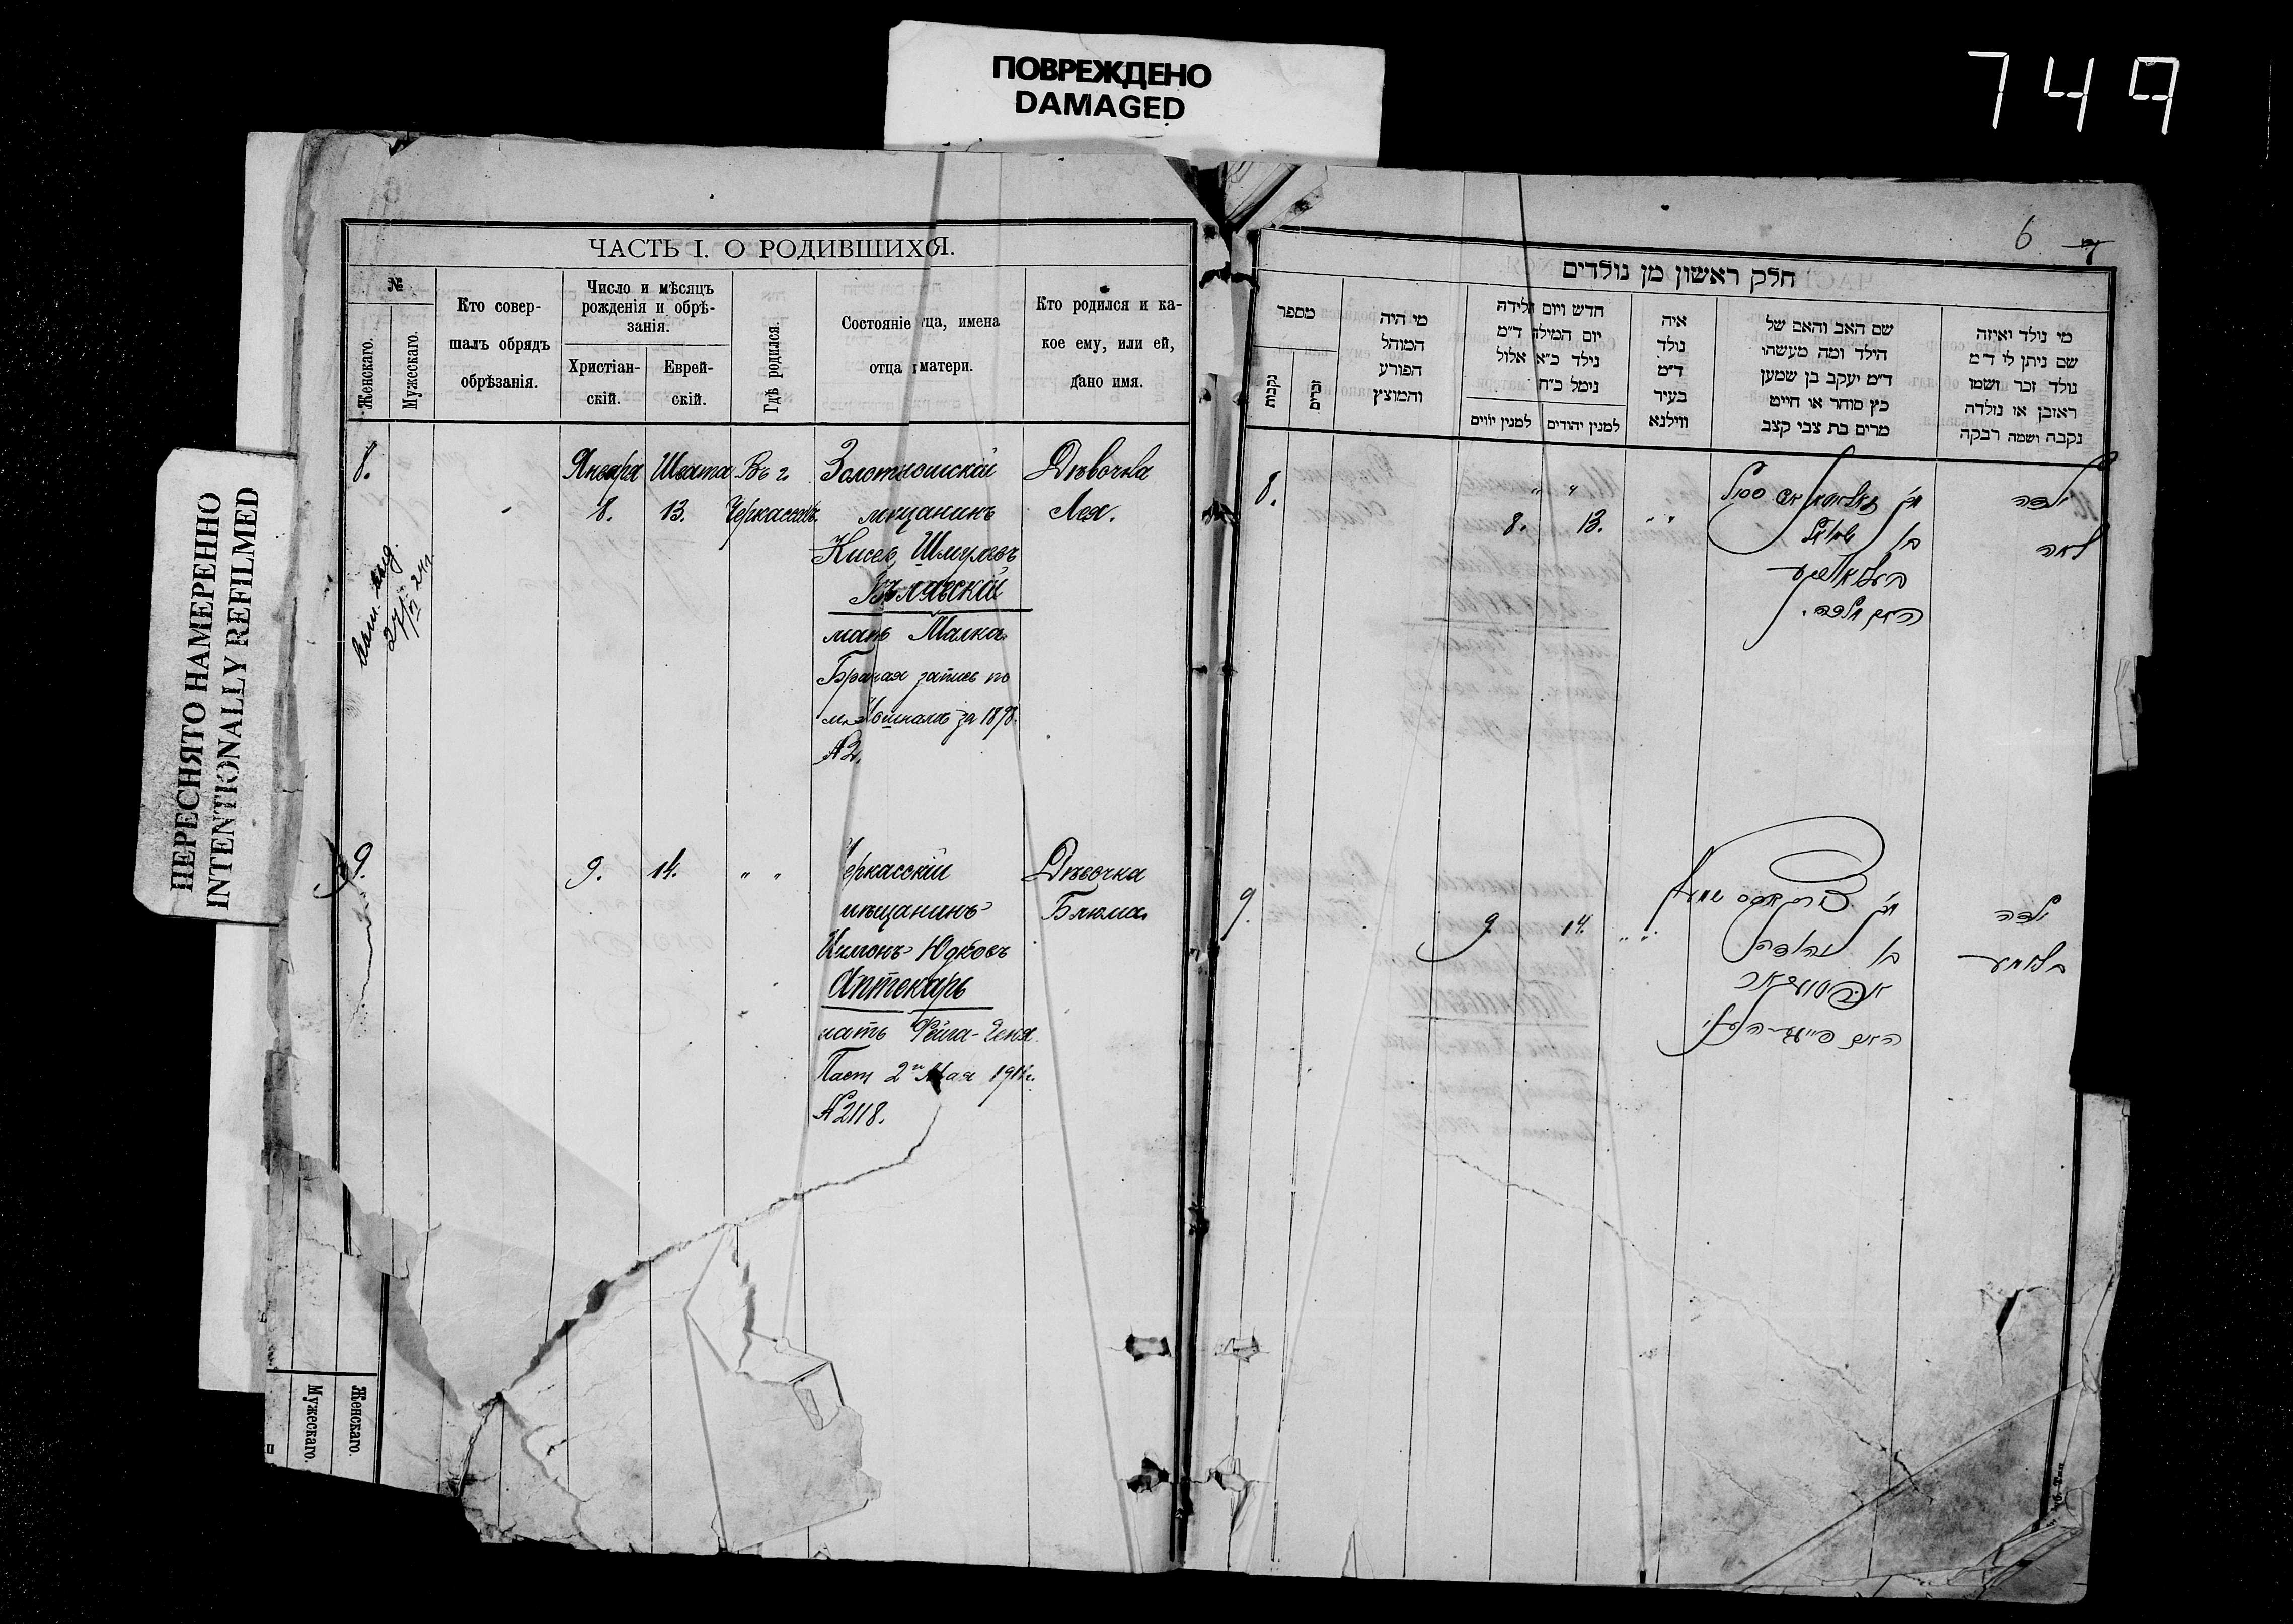 ПОВРЕЖДЕНО
DAMAGED
749
ПЕРЕСНЯТО НАМЕРЕННО
INTENTIONALLY REFILMED
ЧАСТЬ I. О РОДИВШИХСЯ.
№
Женскаго.
Мужескаго.
Кто совер-
шалъ обрядъ
обрѣзанія.
Число и мѣсяцъ
рожденія и обрѣ-
занія.
Христіан-
скій.
Еврей-
скій.
Гдѣ родился.
Состояніе отца, имена
отца и матери.
Кто родился и ка-
кое ему, или ей,
дано имя.
8.
Января
8.
Швата
13.
Въ г.
Черкассахъ.
Золотоношскій
мѣщанинъ
Кисель Шмулевъ
мать Малка
Брачная запись по
за 1898
№ 2.
Дѣвочка
Лея.
9.
9.
14.
" "
Черкасскій
мѣщанинъ
Юдковъ
Аптекарь
мать Фейга-Геня
Пасп 2го Мая
№ 2118.
Дѣвочка
Блюма.
Мужескаго.
Женскаго.
6 7
חלק ראשון מן נולדים
מספר
נקבות
זכרים
מי היה
המוהל
הפורע
והמוצץ
חדש ויום הלידה
יום המילה ד"מ
נילד כ"א אלול
נימל כ"ח
למנין יוונים
למנין יהודים
איה
נולד
ד"מ
בעיר
ווילנא
שם האב והאם של
הילד ומה מעשהו
ד"מ יעקב בן שמען
כץ סוחר או חייט
מרים בת צבי קצב
מי נולד ואיזה
שם ניתן לו ד"מ
נולד זכר ושמו
ראובן או נולדה
נקבה ושמה רבקה
8.
" "
8.
13.
" "
בן שמואל
האם מלכה.
ילדה
לאה
9.
9.
14.
" "
בן יהודה
ילדה
בלומע